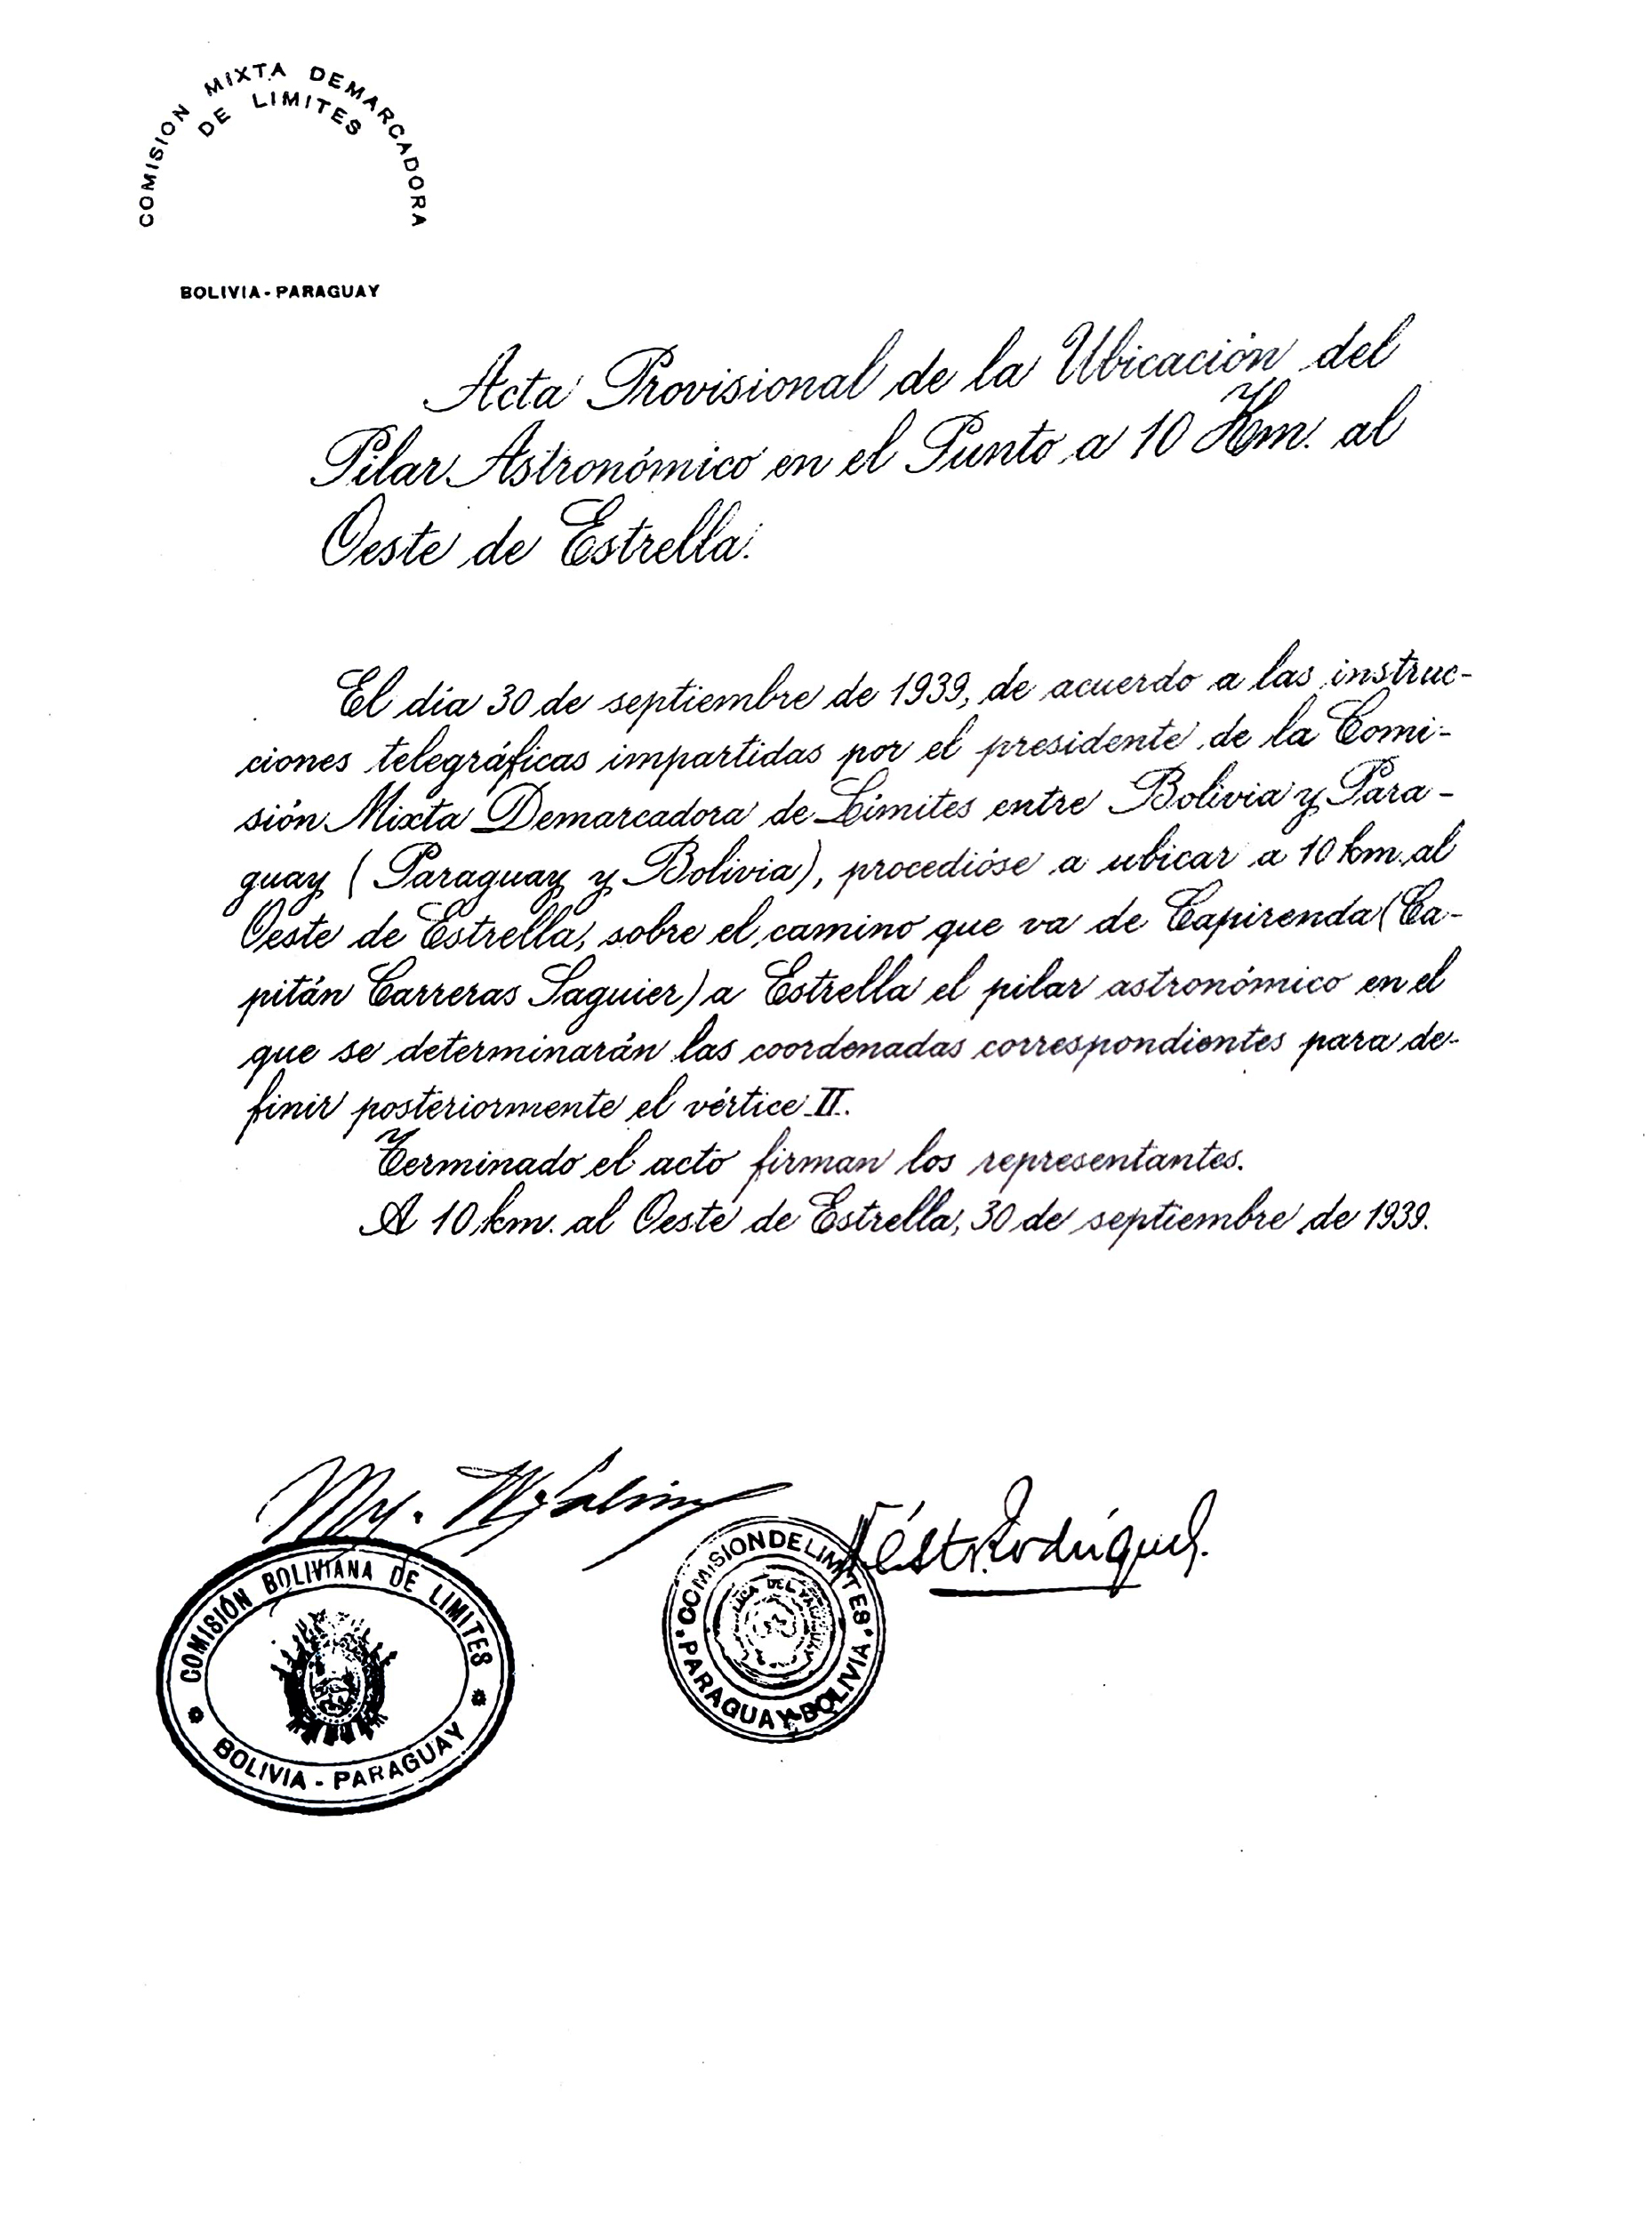 COMISION MIXTA DEMARCADORA
DE LIMITES
BOLIVIA - PARAGUAY
Acta Provisional de la Ubicación del
Pilar Astronómico en el Punto a 10 Km. al
Oeste de Estrella.
El día 30 de septiembre de 1939, de acuerdo a las instruc-
ciones telegráficas impartidas por el presidente de la Comi-
sión Mixta Demarcadora de Límites entre Bolivia y Para-
guay (Paraguay y Bolivia), procedióse a ubicar a 10 km. al
Oeste de Estrella, sobre el camino que va de Capirenda (Ca-
pitán Carreras Saguier) a Estrella el pilar astronómico en el
que se determinarán las coordenadas correspondientes para de-
finir posteriormente el vértice II.
Terminado el acto firman los representantes.
A 10 km. al Oeste de Estrella, 30 de septiembre de 1939.
My.
Nést. Rodríguez.
COMISIÓN BOLIVIANA DE LIMITES
BOLIVIA - PARAGUAY
COMISION DE LIMITES
PARAGUAY-BOLIVIA